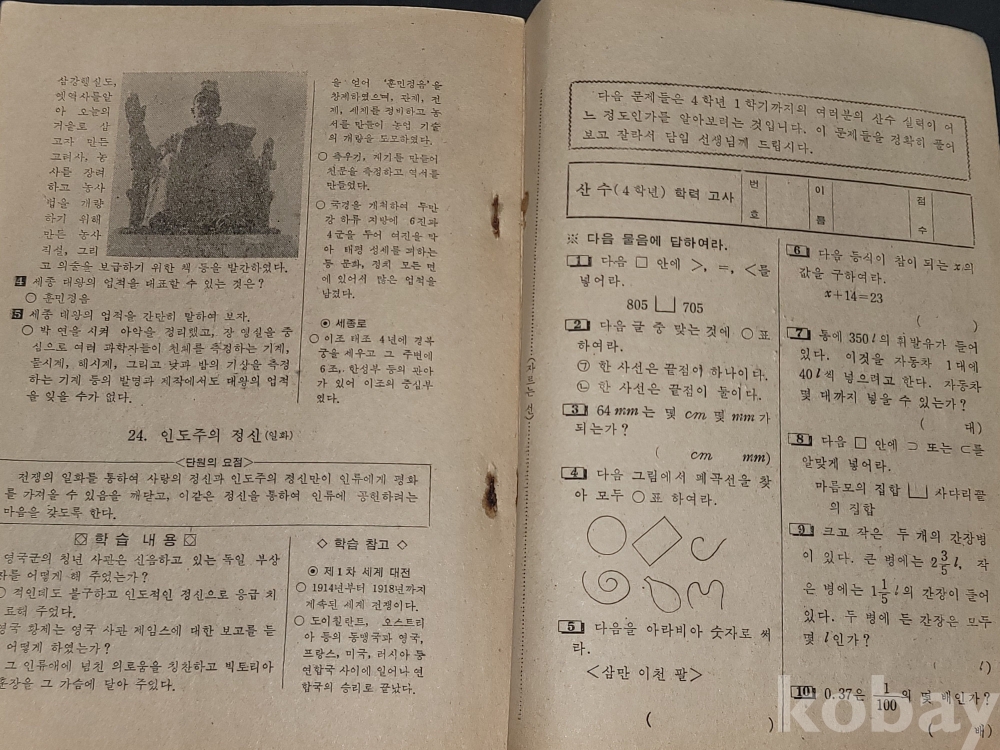 삼강행실도,
옛역사를알
아 오늘의
거울로 삼
고자 만든
고려사, 농
사를 장려
하고 농사
법을 개량
하기 위해
만든 농사
직설, 그리
고 의술을 보급하기 위한 책 등을 발간하였다.
4 세종 대왕의 업적을 대표할 수 있는 것은?
○ 훈민정음
5 세종 대왕의 업적을 간단히 말하여 보자.
○ 박 연을 시켜 아악을 정리했고, 장 영실을 중
심으로 여러 과학자들이 천체를 측정하는 기계,
물시계, 해시계, 그리고 낮과 밤의 기상을 측정
하는 기계 등의 발명과 제작에서도 대왕의 업적
을 잊을 수가 없다.
24. 인도주의 정신(일화)
<단원의 요점>
전쟁의 일화를 통하여 사랑의 정신과 인도주의 정신만이 인류에게 평화
를 가져올 수 있음을 깨닫고, 이같은 정신을 통하여 인류에 공헌하려는
마음을 갖도록 한다.
학습 내용
영국군의 청년 사관은 신음하고 있는 독일 부상
자를 어떻게 해 주었는가?
○ 적인데도 불구하고 인도적인 정신으로 응급 치
료해 주었다.
영국 황제는 영국 사관 제임스에 대한 보고를 듣
어떻게 하였는가?
그 인류애에 넘친 의로움을 칭찬하고 빅토리아
훈장을 그 가슴에 달아 주었다.
을 얻어 '훈민정음'을
창제하였으며, 관제, 전
제, 세제를 정비하고 농
서를 만들어 농업 기술
의 개량을 도모하였다.
○ 측우기, 계기를 만들어
천문을 측정하고 역서를
만들었다.
○ 국경을 개척하여 두만
강 하류 지방에 6진과
4군을 두어 여진을 막
아 태평 성세를 꾀하는
등 문화, 정치 모든 면
에 있어서 많은 업적을
남겼다.
◉ 세종로
○ 이조 태조 4년에 경복
궁을 세우고 그 주변에
6조, 한성부 등의 관아
가 있어 이조의 중심부
였다.
◇ 학습 참고 ◇
◉ 제1차 세계 대전
○ 1914년부터 1918년까지
계속된 세계 전쟁이다.
○ 도이칠란트, 오스트리
아 등의 동맹국과 영국,
프랑스, 미국, 러시아 등
연합국 사이에 일어나 연
합국의 승리로 끝났다.
(자르는 선)
다음 문제들은 4학년 1학기까지의 여러분의 산수 실력이 어
느 정도인가를 알아보려는 것입니다. 이 문제들을 정확히 풀어
보고 잘라서 담임 선생님께 드립시다.
산수(4학년) 학력 고사
번호
이름
점수
※ 다음 물음에 답하여라.
1 다음 □ 안에 >, =, <를
넣어라.
805 □ 705
2 다음 글 중 맞는 것에 ○표
하여라.
㉠ 한 사선은 끝점이 하나이다.
㉡ 한 사선은 끝점이 둘이다.
3 64mm는 몇 cm 몇 mm가
되는가?
( cm mm)
4 다음 그림에서 폐곡선을 찾
아 모두 ○표 하여라.
5 다음을 아라비아 숫자로 써
라.
<삼만 이천 팔>
( )
6 다음 등식이 참이 되는 x의
값을 구하여라.
x+14=23
( )
7 통에 350l의 휘발유가 들어
있다. 이것을 자동차 1대에
40l씩 넣으려고 한다. 자동차
몇 대까지 넣을 수 있는가?
( 대)
8 다음 □ 안에 ⊃ 또는 ⊂를
알맞게 넣어라.
마름모의 집합 □ 사다리꼴
의 집합
9 크고 작은 두 개의 간장병
이 있다. 큰 병에는 2 3/5 l, 작
은 병에는 1 1/5 l의 간장이 들어
있다. 두 병에 든 간장은 모두
몇 l인가?
( l)
10 0.37은 1/100의 몇 배인가?
( 배)
kobay